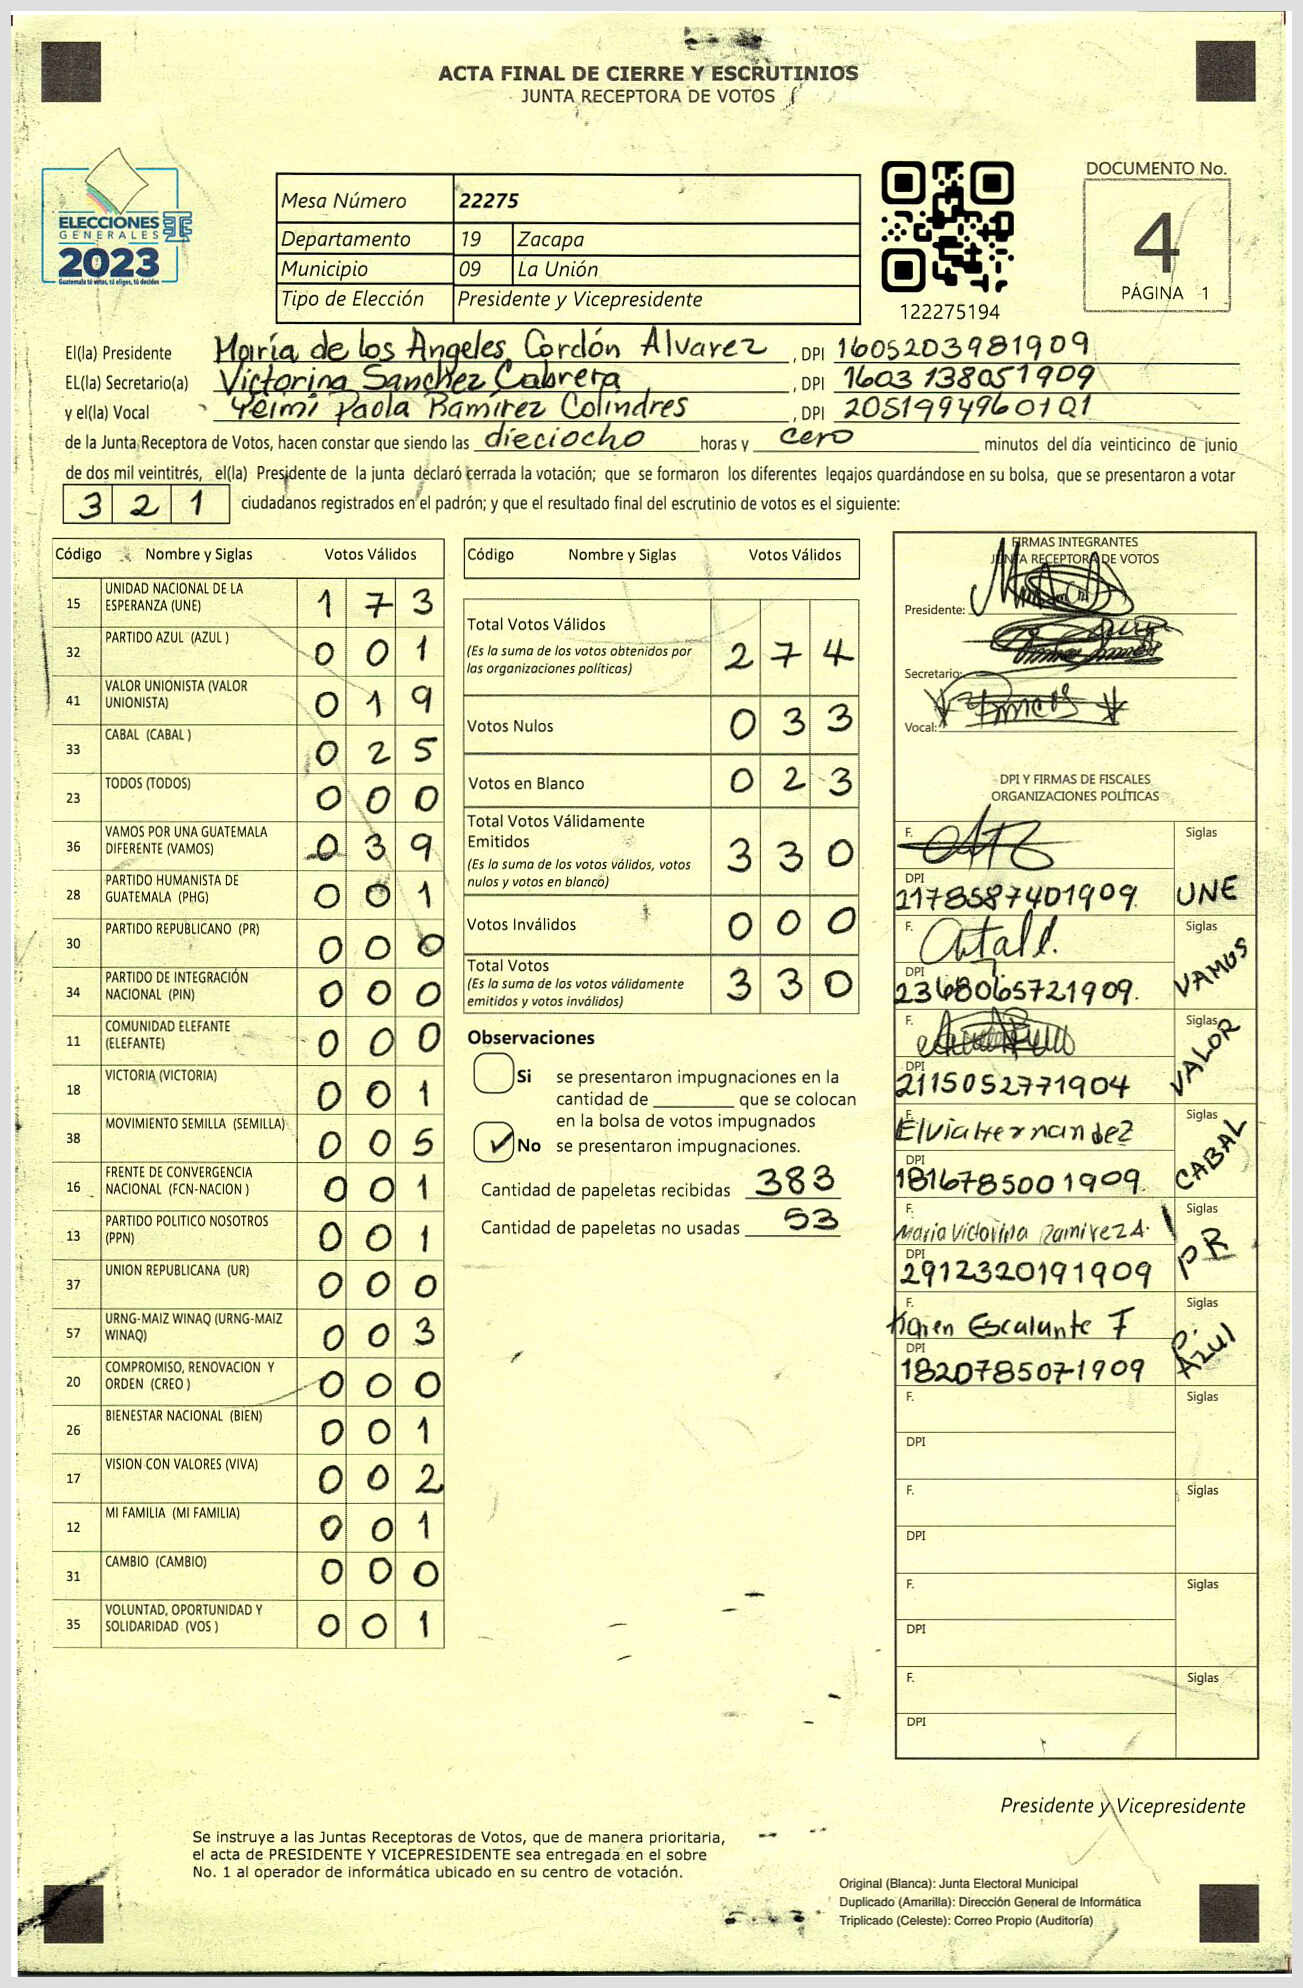 ACTA FINAL DE CIERRE Y ESCRUTINIOS
JUNTA RECEPTORA DE VOTOS
ELECCIONES
GENERALES
2023
Guatemala tú votas, tú eliges, tú decides
TSE
Mesa Número 22275
Departamento 19 Zacapa
Municipio 09 La Unión
Tipo de Elección Presidente y Vicepresidente
122275194
DOCUMENTO No.
4
PÁGINA 1
El(la) Presidente María de los Angeles Cordón Alvarez, DPI 1605203981909
EL(la) Secretario(a) Victorina Sanchez Cabrera, DPI 1603138051909
y el(la) Vocal Yeimi Paola Ramírez Colindres, DPI 2051994960101
de la Junta Receptora de Votos, hacen constar que siendo las dieciocho horas y cero minutos del día veinticinco de junio
de dos mil veintitrés, el(la) Presidente de la junta declaró cerrada la votación; que se formaron los diferentes legajos guardándose en su bolsa, que se presentaron a votar
3 2 1 ciudadanos registrados en el padrón; y que el resultado final del escrutinio de votos es el siguiente:
Código Nombre y Siglas Votos Válidos
15 UNIDAD NACIONAL DE LA ESPERANZA (UNE) 1 7 3
32 PARTIDO AZUL (AZUL ) 0 0 1
41 VALOR UNIONISTA (VALOR UNIONISTA) 0 1 9
33 CABAL (CABAL ) 0 2 5
23 TODOS (TODOS) 0 0 0
36 VAMOS POR UNA GUATEMALA DIFERENTE (VAMOS) 0 3 9
28 PARTIDO HUMANISTA DE GUATEMALA (PHG) 0 0 1
30 PARTIDO REPUBLICANO (PR) 0 0 0
34 PARTIDO DE INTEGRACIÓN NACIONAL (PIN) 0 0 0
11 COMUNIDAD ELEFANTE (ELEFANTE) 0 0 0
18 VICTORIA (VICTORIA) 0 0 1
38 MOVIMIENTO SEMILLA (SEMILLA) 0 0 5
16 FRENTE DE CONVERGENCIA NACIONAL (FCN-NACION ) 0 0 1
13 PARTIDO POLITICO NOSOTROS (PPN) 0 0 1
37 UNION REPUBLICANA (UR) 0 0 0
57 URNG-MAIZ WINAQ (URNG-MAIZ WINAQ) 0 0 3
20 COMPROMISO, RENOVACION Y ORDEN (CREO ) 0 0 0
26 BIENESTAR NACIONAL (BIEN) 0 0 1
17 VISION CON VALORES (VIVA) 0 0 2
12 MI FAMILIA (MI FAMILIA) 0 0 1
31 CAMBIO (CAMBIO) 0 0 0
35 VOLUNTAD, OPORTUNIDAD Y SOLIDARIDAD (VOS ) 0 0 1
Código Nombre y Siglas Votos Válidos
Total Votos Válidos 2 7 4
(Es la suma de los votos obtenidos por
las organizaciones políticas)
Votos Nulos 0 3 3
Votos en Blanco 0 2 3
Total Votos Válidamente
Emitidos 3 3 0
(Es la suma de los votos válidos, votos
nulos y votos en blanco)
Votos Inválidos 0 0 0
Total Votos 3 3 0
(Es la suma de los votos válidamente
emitidos y votos inválidos)
Observaciones
Si se presentaron impugnaciones en la
cantidad de ________ que se colocan
en la bolsa de votos impugnados
✓ No se presentaron impugnaciones.
Cantidad de papeletas recibidas 383
Cantidad de papeletas no usadas 53
FIRMAS INTEGRANTES
JUNTA RECEPTORA DE VOTOS
Presidente:
Secretario:
Vocal:
DPI Y FIRMAS DE FISCALES
ORGANIZACIONES POLÍTICAS
F. Siglas
DPI
2178587401909 UNE
F. Siglas
DPI
2368065721909. VAMOS
F. Siglas
DPI
2115052771904 VALOR
F. Elvia Hernandez Siglas
DPI
1816785001909 CABAL
F. Maria Victorina Ramirez A. Siglas
DPI
2912320191909 PR
F. Karen Escalante F Siglas
DPI
1820785071909 P. Azul
F. Siglas
DPI
F. Siglas
DPI
F. Siglas
DPI
F. Siglas
DPI
Presidente y Vicepresidente
Se instruye a las Juntas Receptoras de Votos, que de manera prioritaria,
el acta de PRESIDENTE Y VICEPRESIDENTE sea entregada en el sobre
No. 1 al operador de informática ubicado en su centro de votación.
Original (Blanca): Junta Electoral Municipal
Duplicado (Amarilla): Dirección General de Informática
Triplicado (Celeste): Correo Propio (Auditoría)